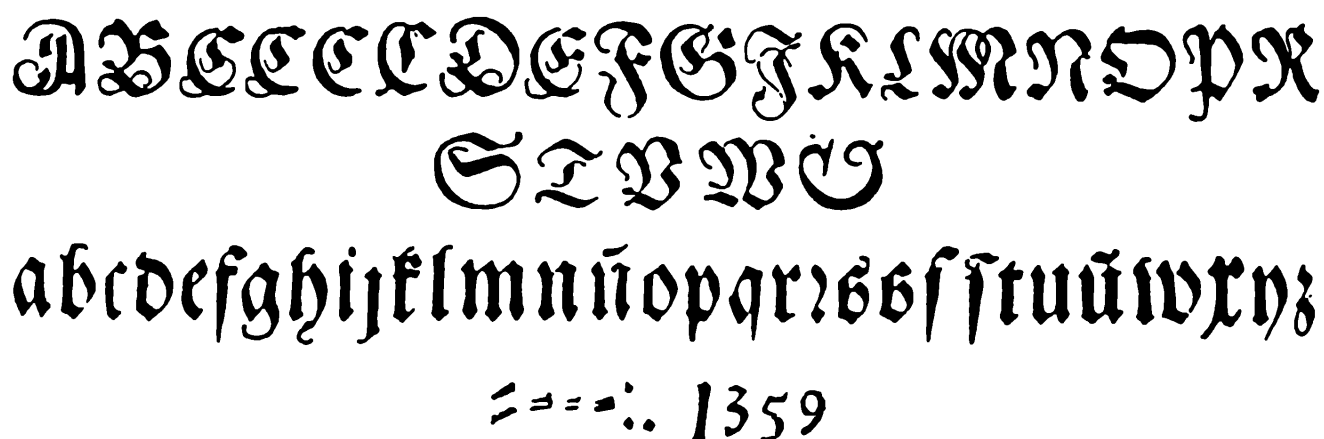 ABCCCCDEFGJKLMNOPR
STVWG
abcdefghijklmnñopqrꝛsſſtuũwxyz
⸗ ⸗ = - : . 1 3 5 9